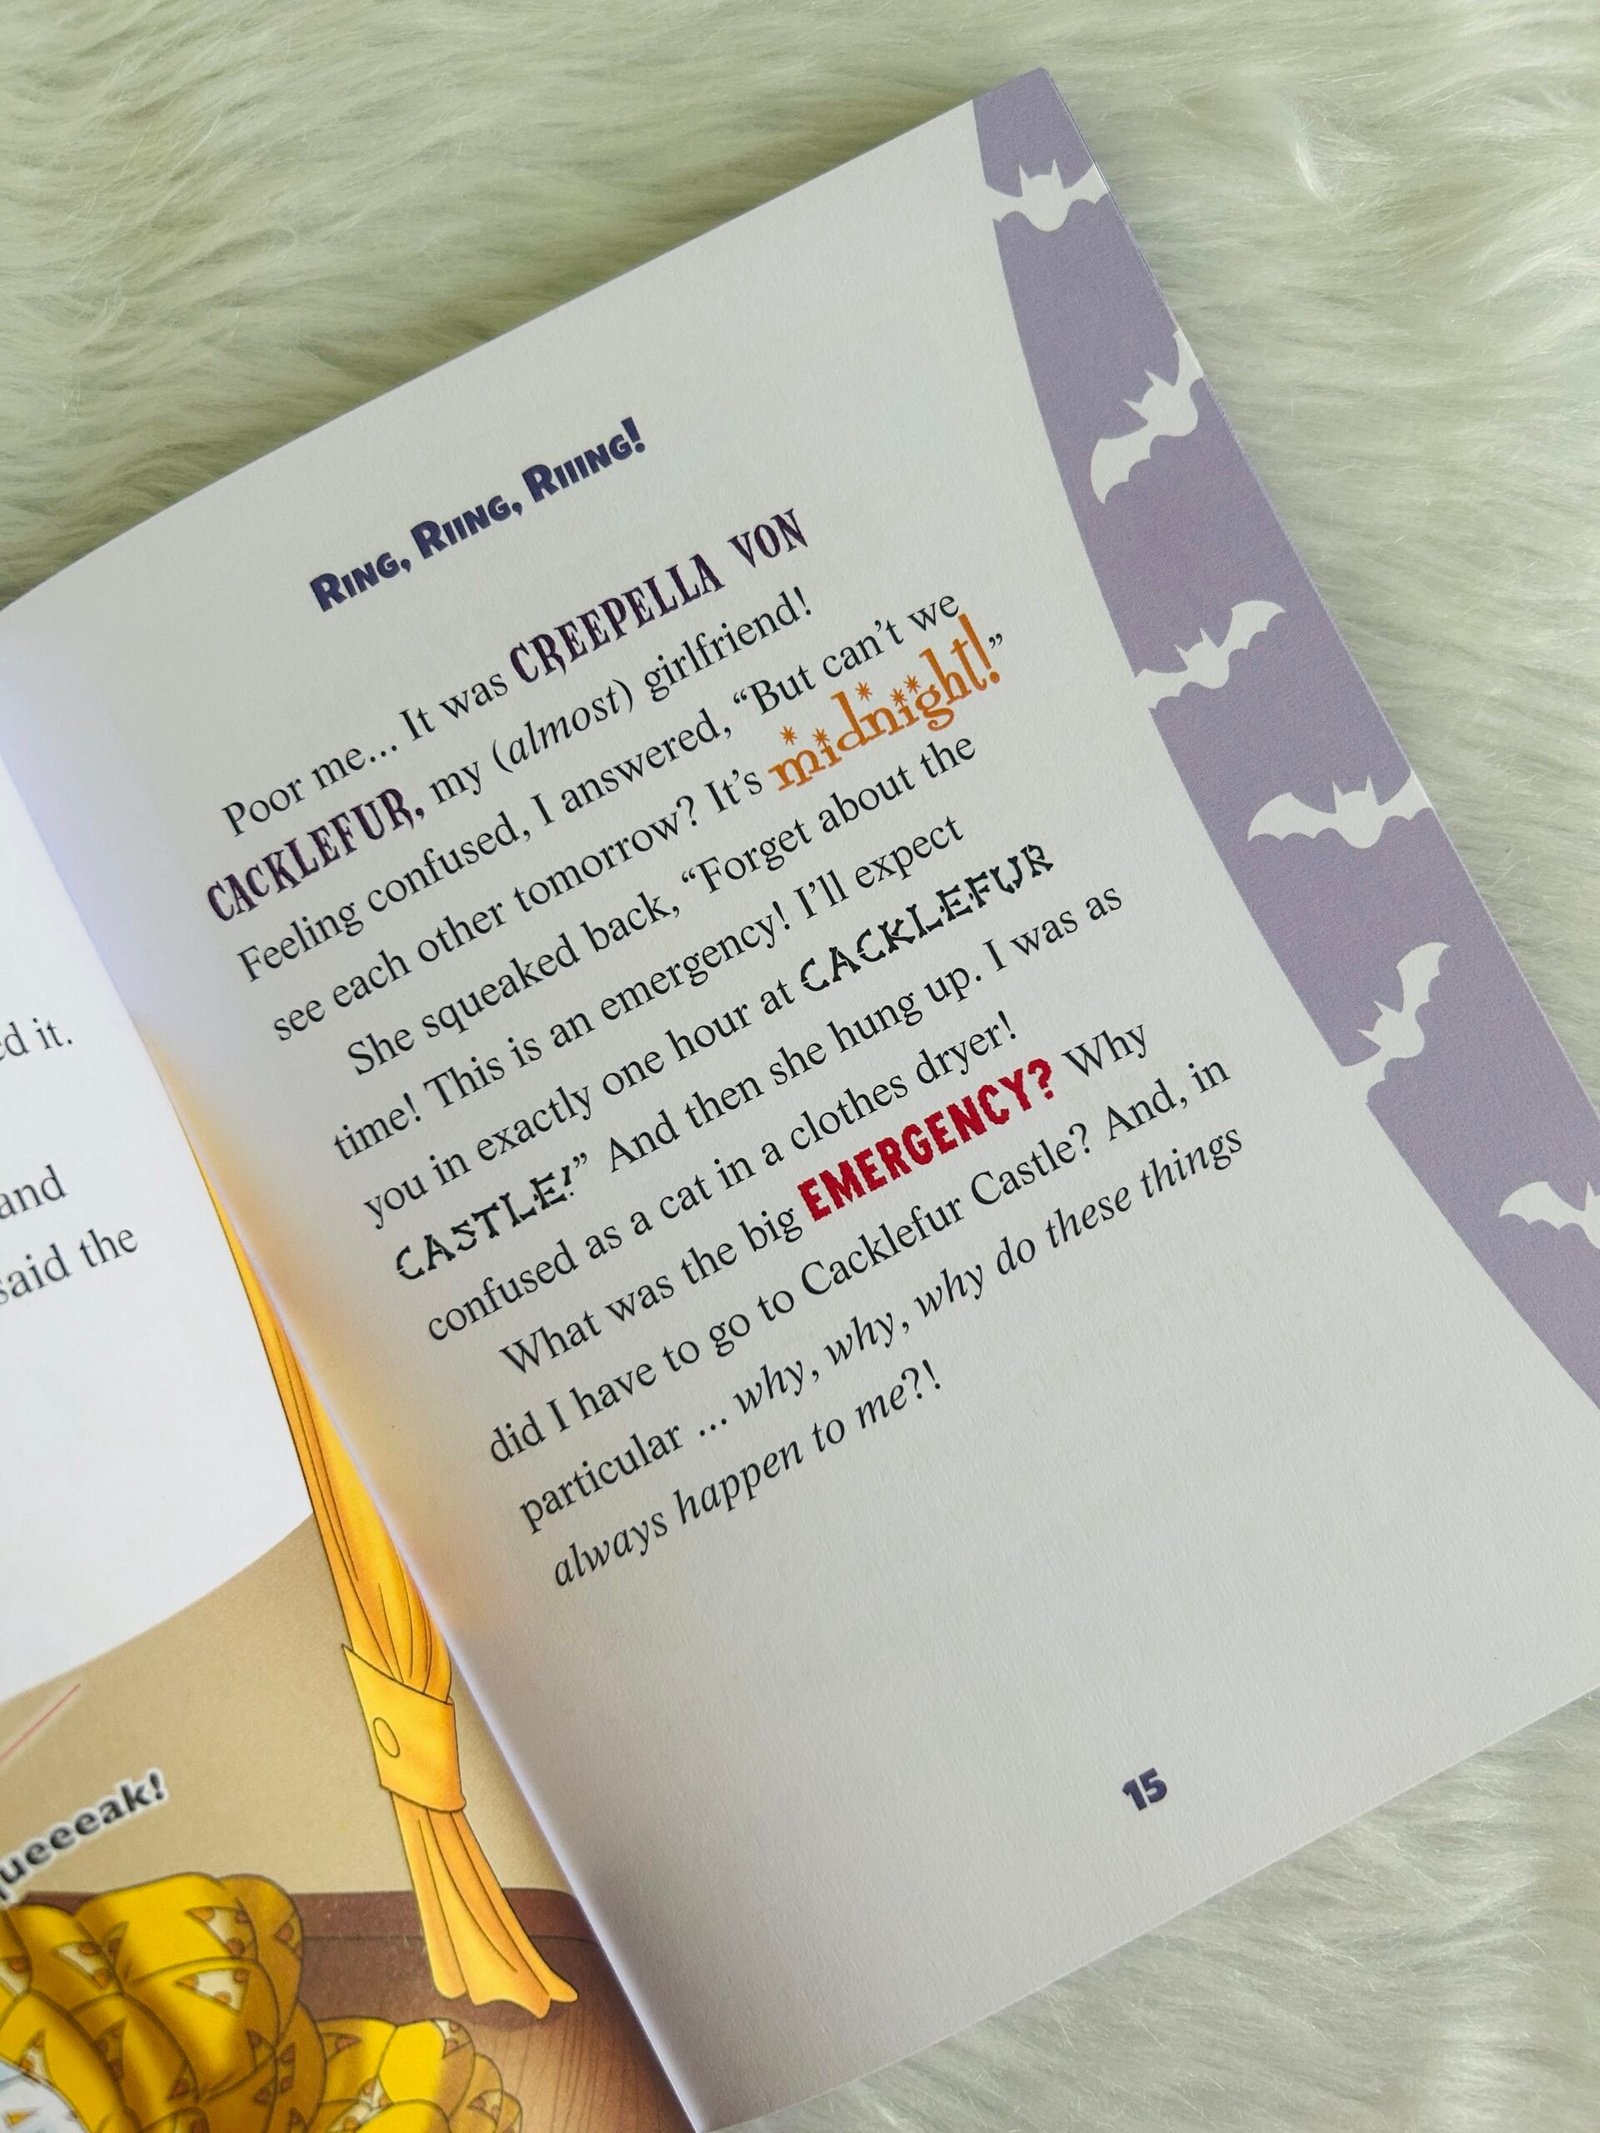 ed it.
and
said the
queeeak!
RING, RIING, RIIING!
Poor me... It was CREEPELLA VON
CACKLEFUR, my (almost) girlfriend!
Feeling confused, I answered, “But can’t we
see each other tomorrow? It’s midnight!”
She squeaked back, “Forget about the
time! This is an emergency! I’ll expect
you in exactly one hour at CACKLEFUR
CASTLE!” And then she hung up. I was as
confused as a cat in a clothes dryer!
What was the big EMERGENCY? Why
did I have to go to Cacklefur Castle? And, in
particular ... why, why, why do these things
always happen to me?!
15